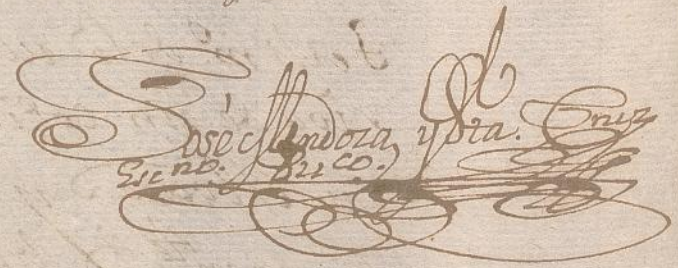 José Mendoza, y Dta. Cruz
Escno. Puco.